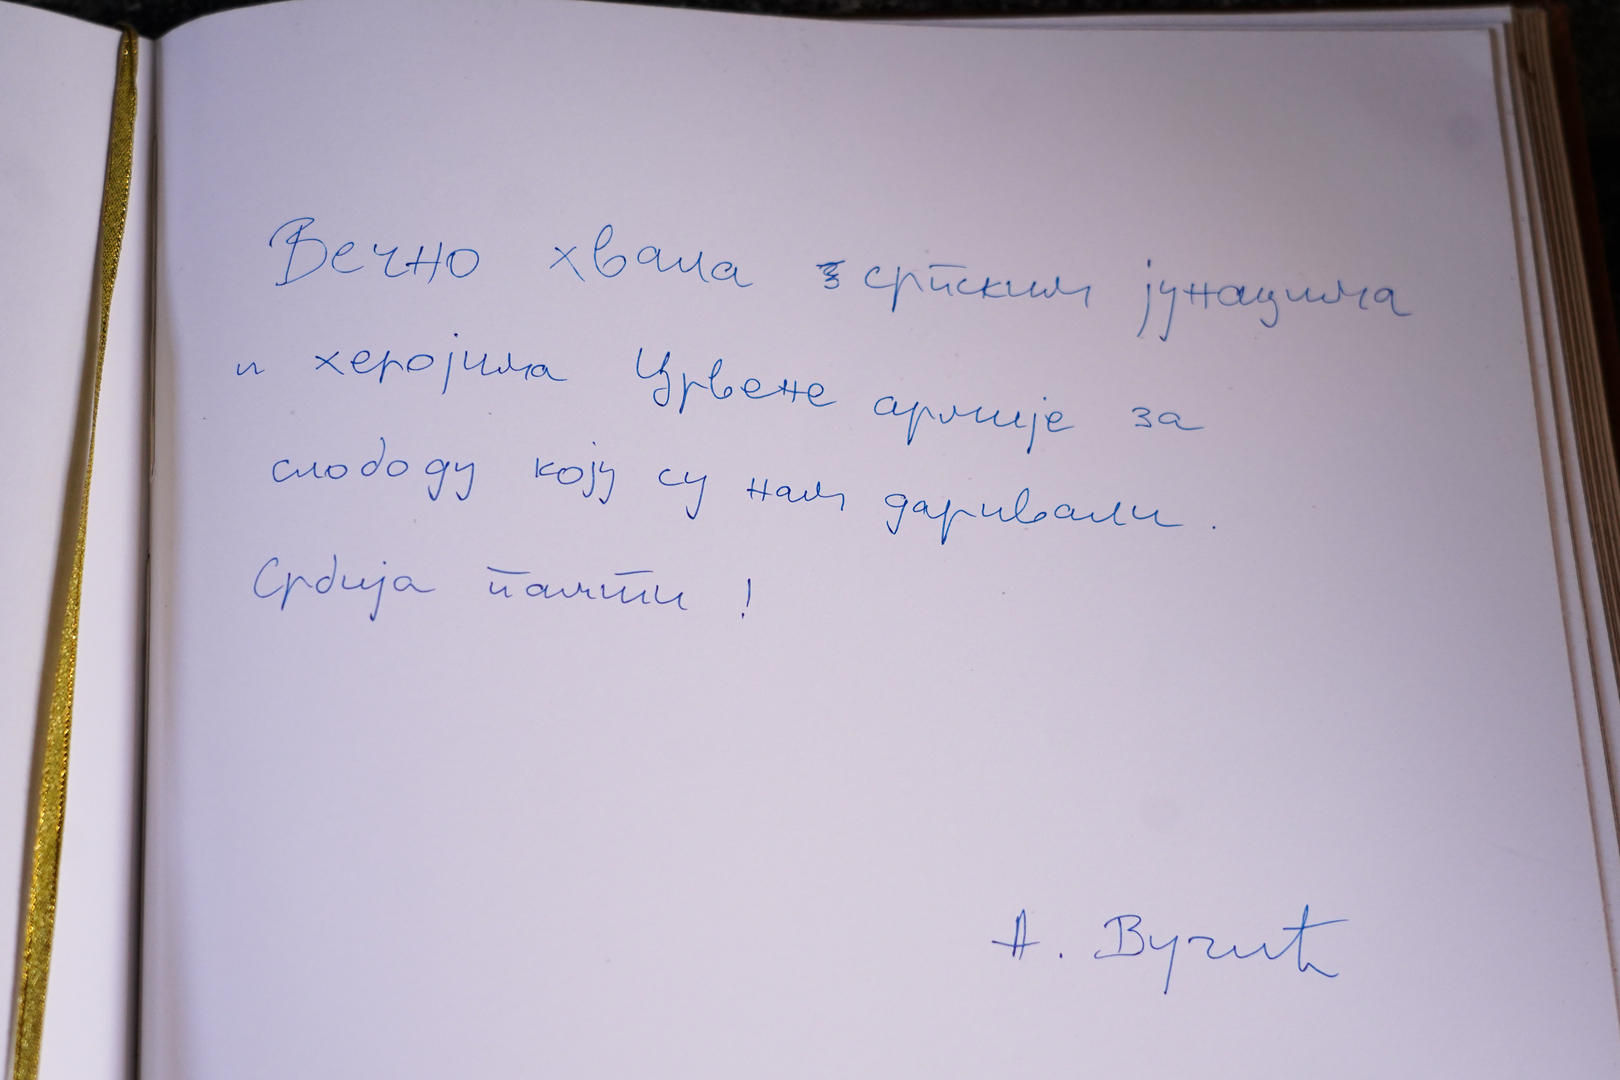 Вечно хвала српским јунацима
и херојима Црвене армије за
слободу коју су нам даривали.
Србија памти!
А. Вучић